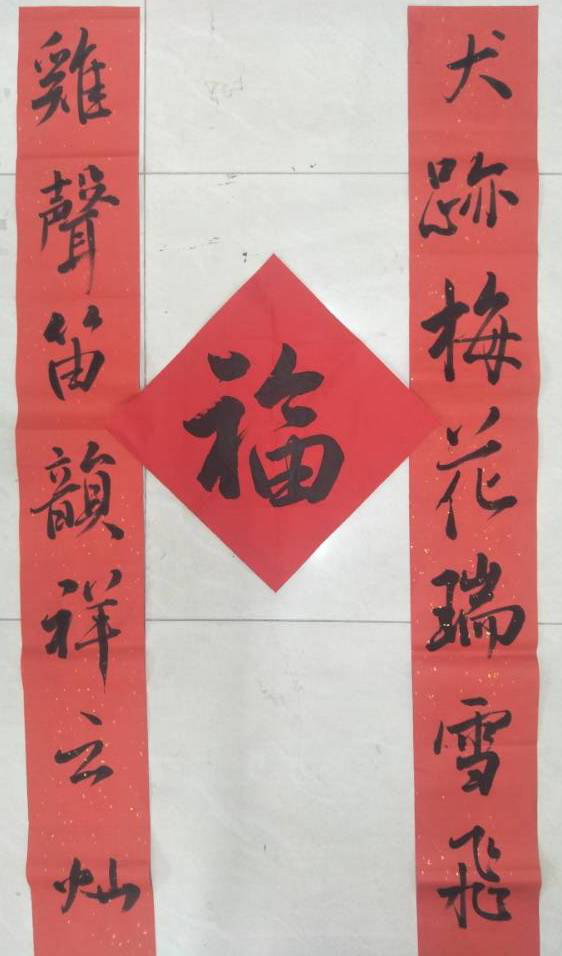 犬跡梅花瑞雪飛
福
雞聲笛韻祥云灿